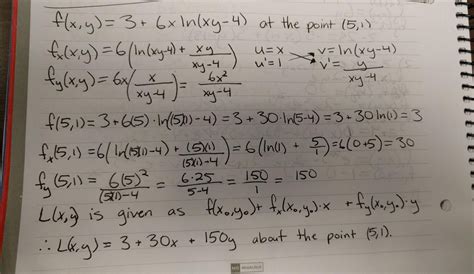 f(x,y) = 3 + 6x ln(xy-4) at the point (5,1)
f_x(x,y) = 6(ln(xy-4) + xy/(xy-4)) u=x v=ln(xy-4)
u'=1 v'=y/(xy-4)
f_y(x,y) = 6x(x/(xy-4)) = 6x²/(xy-4)
f(5,1) = 3+6(5)·ln((5)(1)-4) = 3+30·ln(5-4) = 3+30 ln(1) = 3
f_x(5,1) = 6(ln((5)(1)-4) + (5)(1)/((5)(1)-4)) = 6(ln(1) + 5/1) = 6(0+5) = 30
f_y(5,1) = 6(5)²/((5)(1)-4) = 6·25/(5-4) = 150/1 = 150
L(x,y) is given as f(x₀,y₀) + f_x(x₀,y₀)·x + f_y(x₀,y₀)·y
∴ L(x,y) = 3 + 30x + 150y about the point (5,1).